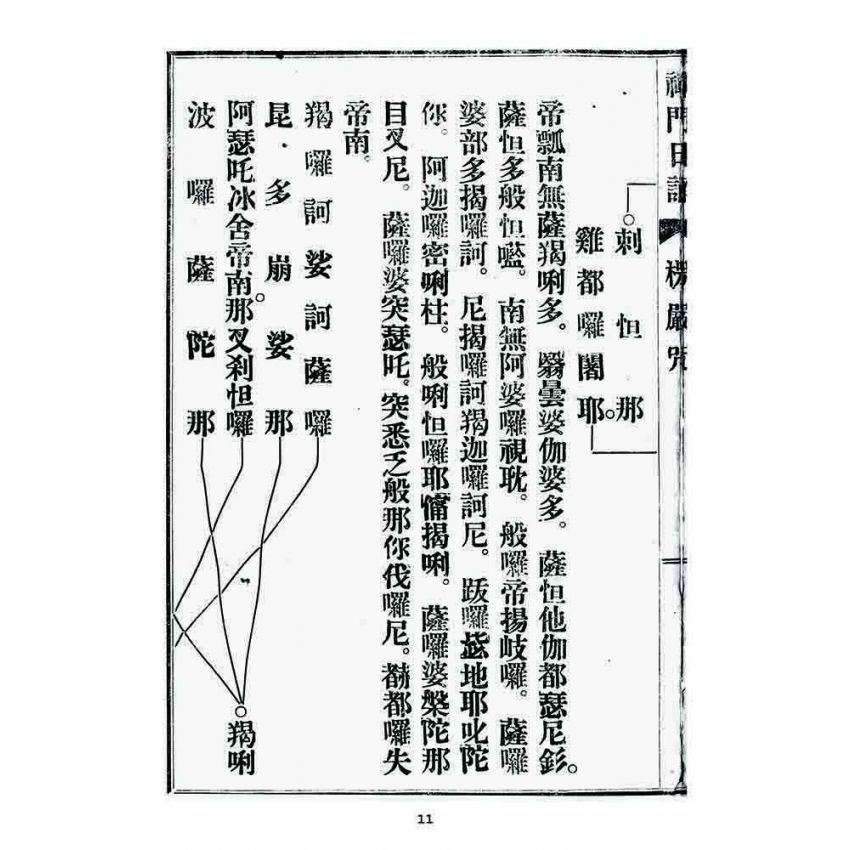 禪門日誦 楞嚴咒
刺怛那
雞都囉闍耶。
帝瓢南無薩羯唎多。翳曇婆伽婆多。薩怛他伽都瑟尼釤。
薩怛多般怛㘕。南無阿婆囉視耽。般囉帝揚岐囉。薩囉
婆部多揭囉訶。尼揭囉訶羯迦囉訶尼。跋囉毖地耶叱陀
你。阿迦囉密唎柱。般唎怛囉耶儜揭唎。薩囉婆槃陀那
目叉尼。薩囉婆突瑟吒。突悉乏般那你伐囉尼。赭都囉失
帝南。
羯囉訶娑訶薩囉
昆多崩娑那
阿瑟吒冰舍帝南。那叉剎怛囉
波囉薩陀那
羯唎
11